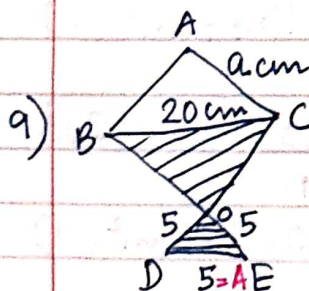 A
a cm
9)
20 cm
B
C
5
O
5
D
5=A
E